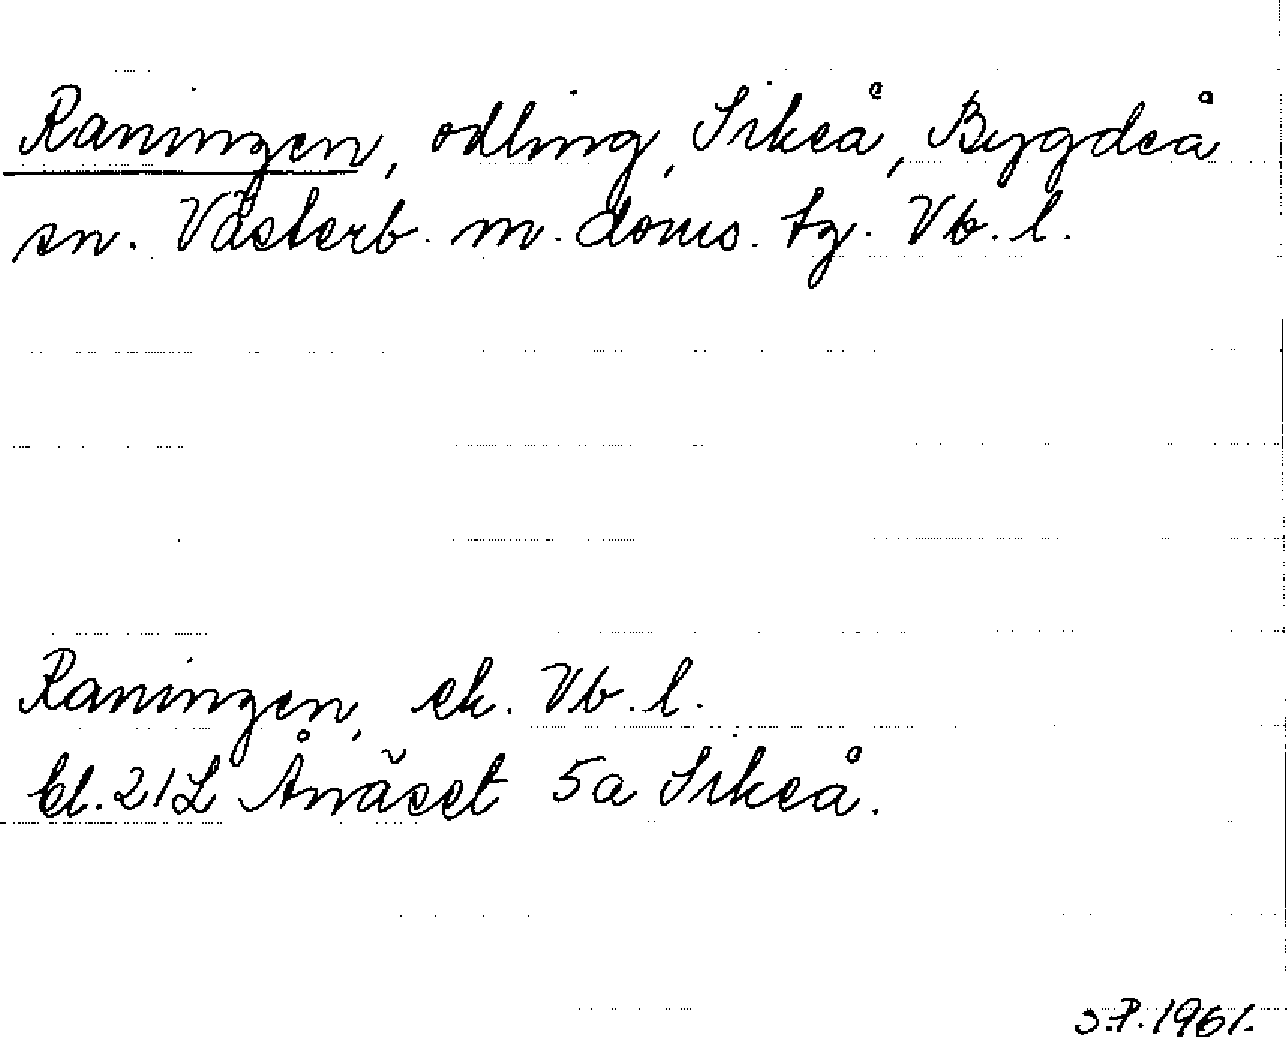 Raningen, odling, Sikeå, Bygdeå
sn. Västerb. m. doms. tg. Vb. l.
Raningen, ek. Vb. l.
bl. 21L Ånäset 5a Sikeå.
S.P. 1961.